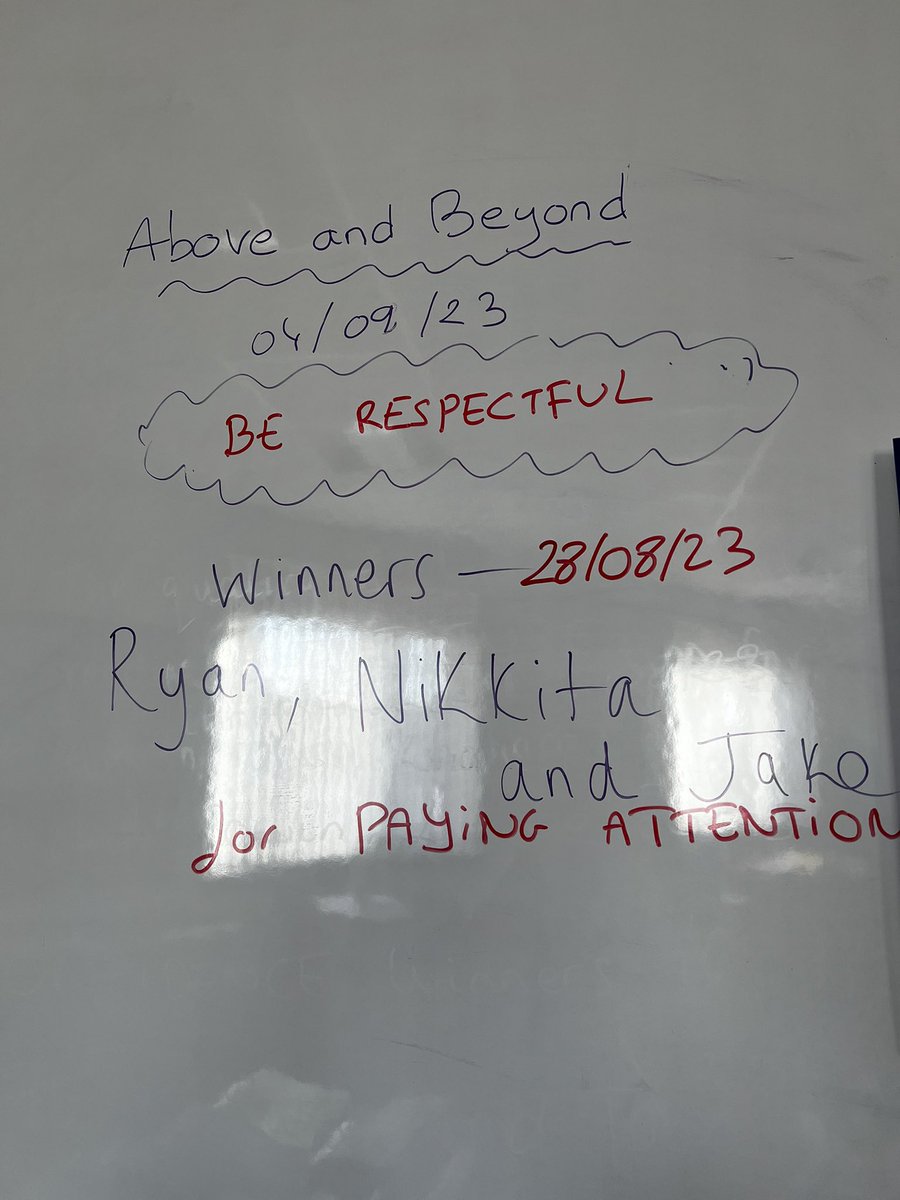 Above and Beyond
04/09/23
BE RESPECTFUL
Winners — 28/08/23
Ryan, Nikkita
and Jake
for PAYiNG ATTENTiON